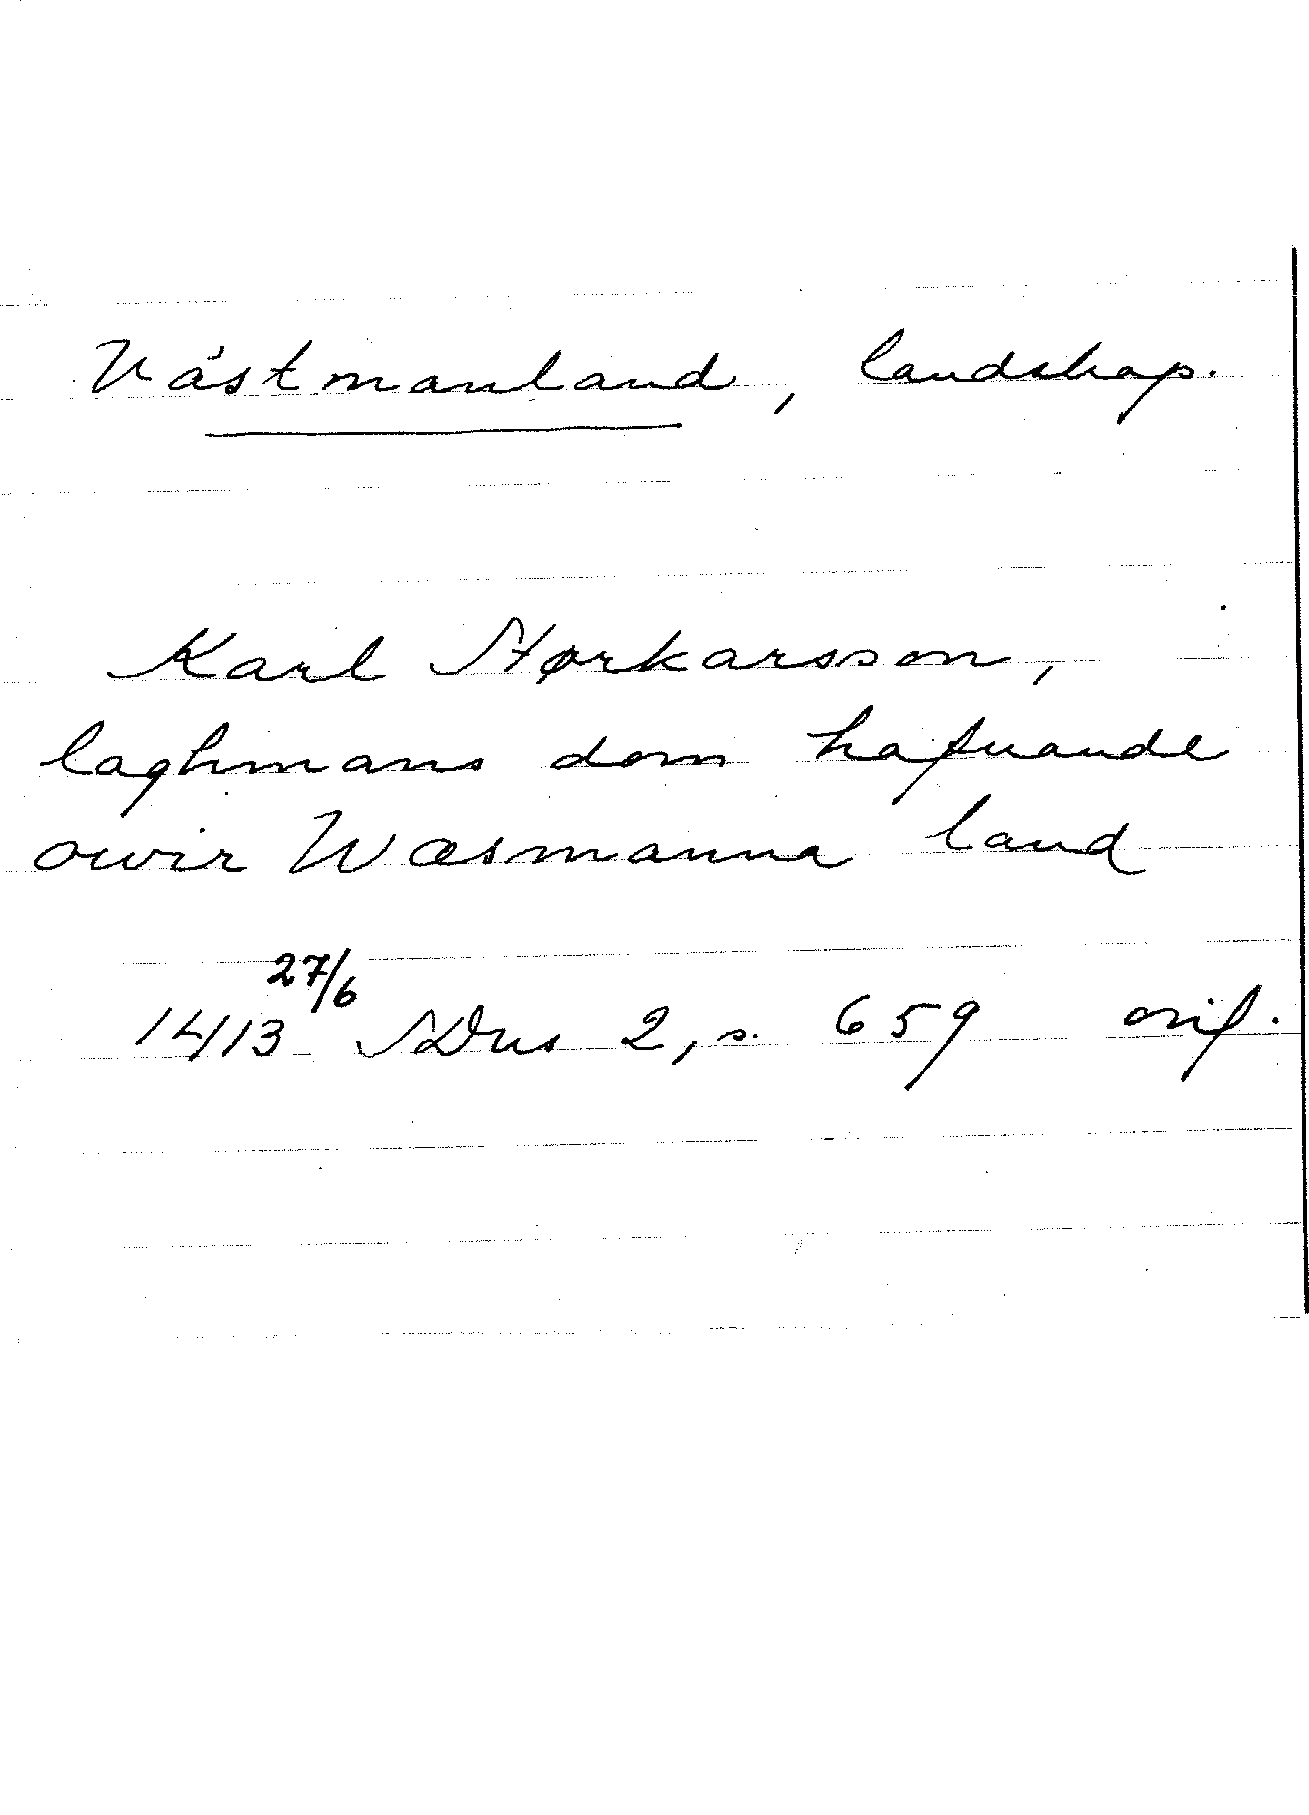 Västmanland, landskap.
Karl Størkarsson,
laghmans dom hafuande
owir Wæsmanna land
1413 27/6 SDns 2, s. 659 orig.